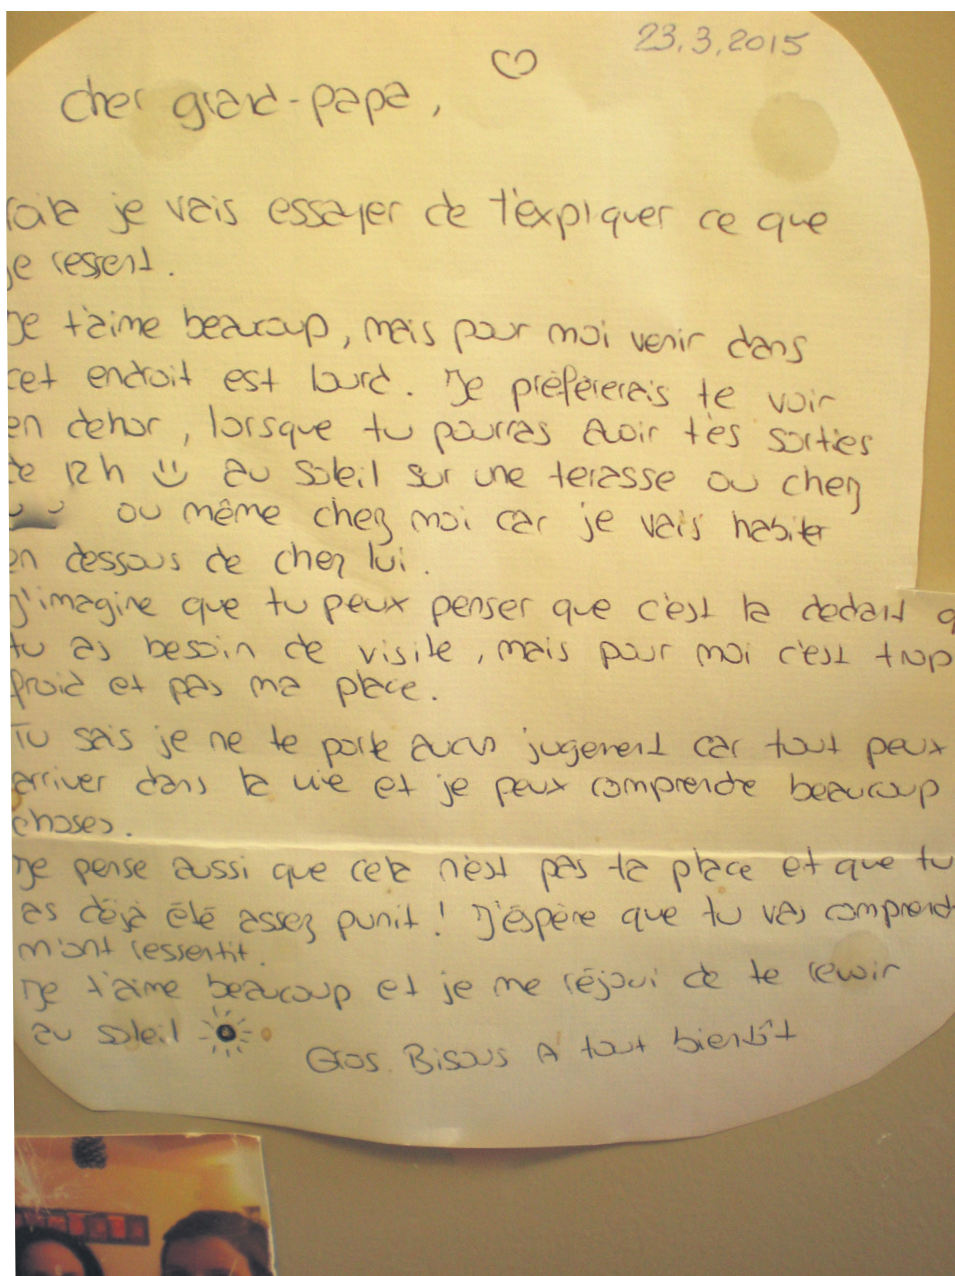 23.3.2015
cher grand-papa,
voila je vais essayer de t'expliquer ce que
je ressent.
Je t'aime beaucoup, mais pour moi venir dans
cet endroit est lourd. Je préférerais te voir
en dehor, lorsque tu pourras avoir tes sorties
de 12h au soleil sur une terasse ou chez
ou même chez moi car je vais habiter
en dessous de chez lui.
J'imagine que tu peux penser que c'est la dedant q
tu as besoin de visite, mais pour moi c'est trop
froid et pas ma place.
Tu sais je ne te porte aucun jugement car tout peux
arriver dans la vie et je peux comprendre beaucoup
choses.
Je pense aussi que cela n'est pas ta place et que tu
as déjà été assez punit! J'éspère que tu vas comprend
m'ont ressentit.
Je t'aime beaucoup et je me réjoui de te revoir
au soleil
Gros Bisous A tout bientôt